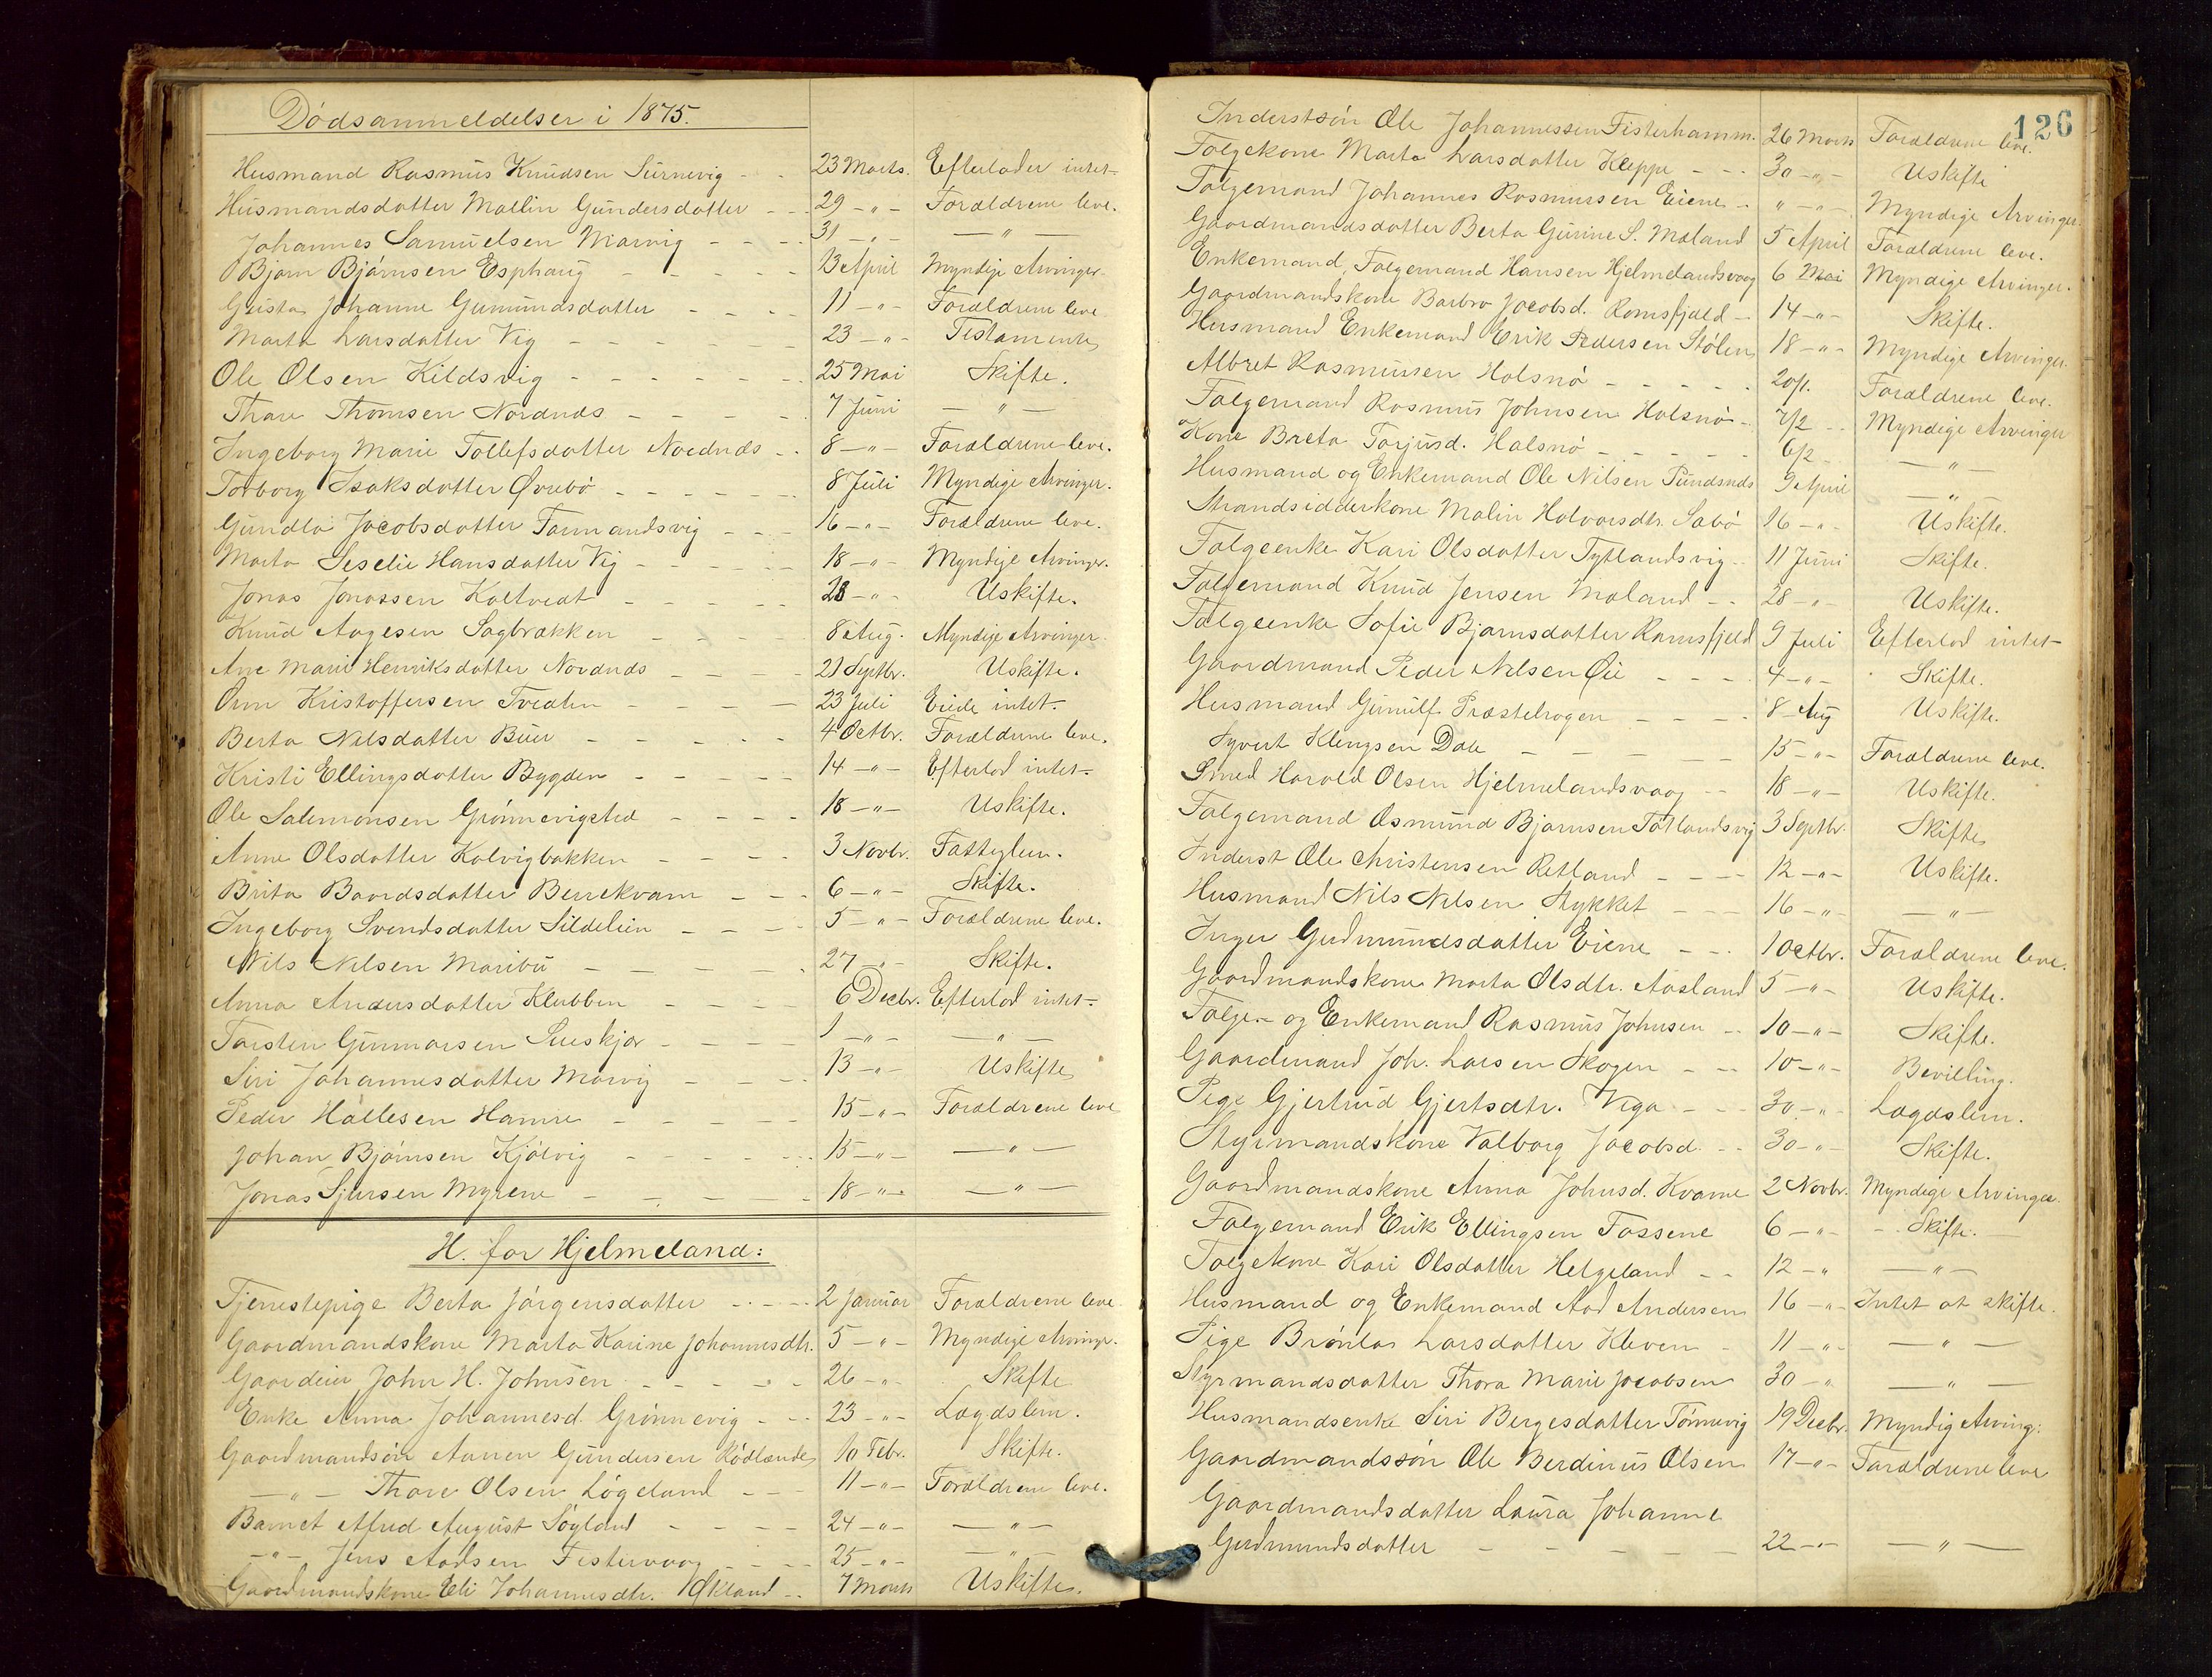 Dödsanmeldelser i 1875.
Husmand Rasmus Knudsen Surnevig - - 23 Marts. Efterlader intet
Husmandsdatter Mallin Gundersdatter - - 29 - " - Forældrene leve.
Johannes Samuelsen Marvig - - - - 31 - " - - " -
Bjørn Bjørnsen Esphaug - - - - - 13 April Myndige Arvinger.
Gusta Johanne Gumundsdatter - - - - 11 - " - Forældrene leve
Marta Larsdatter Vig - - - - - - 23 - " - Testamente
Ole Olsen Kildsvig - - - - - - 25 Mai Skifte.
Thore Thomsen Nordnæs - - - - - 7 Juni - " -
Ingeborg Marie Tollefsdatter Nordnæs - - 8 - " - Forældrene leve.
Torborg Isaksdatter Øvrebö - - - - - 8 Juli Myndige Arvinger.
Gundla Jacobsdatter Tormandsvig - - - 16 - " - Forældrene leve.
Marta Seselie Hansdatter Vig - - - - - 18 - " - Myndige Arvinger.
Jonas Jonassen Kaltvedt - - - - - 28 - " - Uskifte.
Knud Aagesen Sagbrækken - - - - 8 Aug. Myndige Arvinger
Ane Marie Henriksdatter Nordnæs - - - - 21 Septbr. Uskifte.
Orm Kristoffersen Tveden - - - - - 23 Juli Eiede intet.
Berta Nilsdatter Buer - - - - - 4 Octbr. Forældrene leve.
Kristi Ellingsdatter Bygden - - - - - 14 - " - Efterlod intet.
Ole Salemonsen Grønnevigsted - - - - 18 - " - Uskifte.
Anne Olsdatter Kalvigbakken - - - - 3 Novbr. Fattiglem.
Brita Baardsdatter Berrekvam - - - 6 - " - Skifte.
Ingeborg Svendsdatter Sildelien - - - - 5 - " - Forældrene leve.
Nils Nilsen Maribu - - - - - - 27 - " - Skifte.
Anna Andersdatter Klubben - - - - 6 Decbr. Efterlod intet.
Torsten Gunnarsen - - - - 1 - " - - " -
Siri Johannesdatter Marvig - - - - 13 - " - Uskifte
Peder Hallesen Hamre - - - - - 15 - " - Forældrene leve
Johan Bjørnsen Kjölvig - - - - - - 15 - " - - " -
Jonas Sjursen Myrene - - - - - 18 - " - - " -
H. for Hjelmeland:
Tjenestepige Berta Jörgensdatter - - - - 2 Januar Forældrene leve.
Gaardmandskone Marta Karine Johannesdtr. 5 - " - Myndige Arvinger.
Gaardeier John H. Johnsen - - - - - 26 - " - Skifte
Enke Anna Johannesd. Grönnevig - - - 23 - " - Lægdslem.
Gaardmandsön Aanen Gundersen Rödlænde 10 Febr. Skifte.
- " - Thore Olsen Lögeland - - - 11 - " - Forældrene leve.
Barnet Alfred August Sögland - - - - 24 - " - - " -
- " - Jens Aadsen Fistervaag - - - - 25 - " - - " -
Gaardmandskone Eli Johannesdtr. Økland - - 7 Marts Uskifte.
126
Inderstsön Ole Johannessen Fisterhamm. 26 Marts Forældrene leve.
Folgekone Marta Larsdatter Kleppe - - - 30 - " - Uskifte
Folgemand Johannes Rasmussen Eiene - " - " - Myndige Arvinger.
Gaardmandsdatter Berta Gurine S. Maland 5 April Forældrene leve.
Enkemand, Folgemand Hansen Hjelmelandsvaag 6 Mai Myndige Arvinger.
Gaardmandskone Barbro Jacobsd. Ramsfjeld - 14 - " - Skifte.
Husmand Enkemand Erik Pedersen Stölen 18 - " - Myndige Arvinger.
Albret Rasmussen Halsnö - - - - - 20/1. Forældrene leve.
Folgemand Rasmus Johnsen Halsnö - 7/2 - - Myndige Arvinger
Kone Breta Torjusd. Halsnö - - - - - 6/2 - - " -
Husmand og Enkemand Ole Nilsen Pundsnæs 9 April - " -
Strandsidderkone Malin Halvorsdtr. Sabö 16 - " - Uskifte.
Folgeenke Kari Olsdatter Tytlandsvig - - 11 Juni Skifte.
Folgemand Knud Jensen Maland - - 28 - " - Uskifte.
Folgeenke Sofie Bjørnsdatter Ramsfjeld 9 Juli Efterlod intet
Gaardmand Peder Nilsen Øie - - - - 4 - " - Skifte.
Husmand Gunulf Præstekrogen - - - - 8 Aug Uskifte.
Syvert Klengsen Dale - - - - - 15 - " - Forældrene leve.
Smed Harald Olsen Hjelmelandsvaag - - 18 - " - Uskifte.
Folgemand Osmund Bjørnsen Tøtlandsvig 3 Septbr. Skifte
Inderst Ole Christensen Retland - - - - 12 - " - Uskifte.
Husmand Nils Nilsen Stykket - - - 16 - " - - " -
Inger Gudmundsdatter Eiene - - - 1 Octbr. Forældrene leve.
Gaardmandskone Marta Olsdtr. Aasland 5 - " - Uskifte.
Folge- og Enkemand Rasmus Johnsen - - 10 - " - Skifte.
Gaardmand Joh. Larsen Skogen - - - 10 - " - Bevilling.
Pige Gjertrud Gjertsdtr. Viga - - - 30 - " - Lægdslem.
Styrmandskone Valborg Jacobsd. - - 30 - " - Skifte.
Gaardmandskone Anna Johnsd. Kvame 2 Novbr. Myndige Arvinger.
Folgemand Erik Ellingsen Fossene 6 - " - Skifte.
Folgekone Kari Olsdatter Helgeland - - 12 - " - " -
Husmand og Enkemand Aad Andersen 16 - " - Intet at skifte.
Pige Brönla Larsdatter Kleven - 11 - " - - " -
Styrmandsdatter Thora Marie Jacobsen 30 - " - " -
Husmandsenke Siri Bergesdatter Tönnevig 19 Decbr. Myndig Arving.
Gaardmandssön Ole Berdinus Olsen 17 - " - Forældrene leve
Gaardmandsdatter Laura Johanne
Gudmundsdatter - - - - - 22 - " - - " -